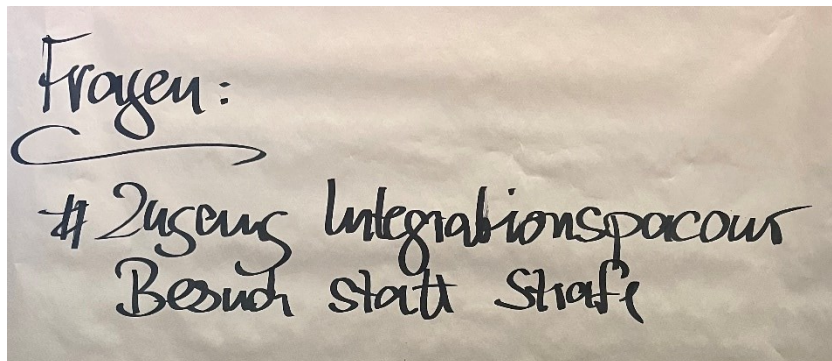 Fragen:
# Zugang Integrationspacour
Besuch statt Strafe